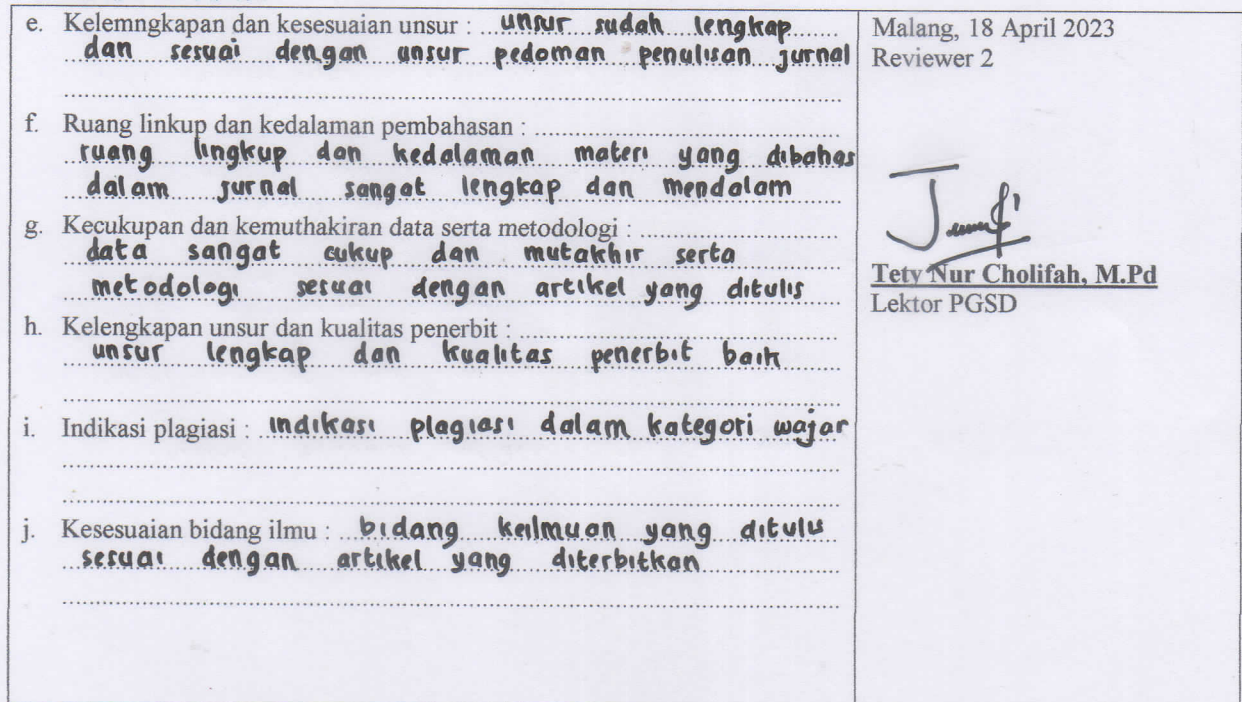 e. Kelemngkapan dan kesesuaian unsur : unsur sudah lengkap
dan sesuai dengan unsur pedoman penulisan jurnal
f. Ruang linkup dan kedalaman pembahasan :
ruang lingkup dan kedalaman materi yang dibahas
dalam jurnal sangat lengkap dan mendalam
g. Kecukupan dan kemuthakiran data serta metodologi :
data sangat cukup dan mutakhir serta
metodologi sesuai dengan artikel yang ditulis
h. Kelengkapan unsur dan kualitas penerbit :
unsur lengkap dan kualitas penerbit baik
i. Indikasi plagiasi : indikasi plagiasi dalam kategori wajar
j. Kesesuaian bidang ilmu : bidang keilmuan yang ditulis
sesuai dengan artikel yang diterbitkan
Malang, 18 April 2023
Reviewer 2
Tety Nur Cholifah, M.Pd
Lektor PGSD